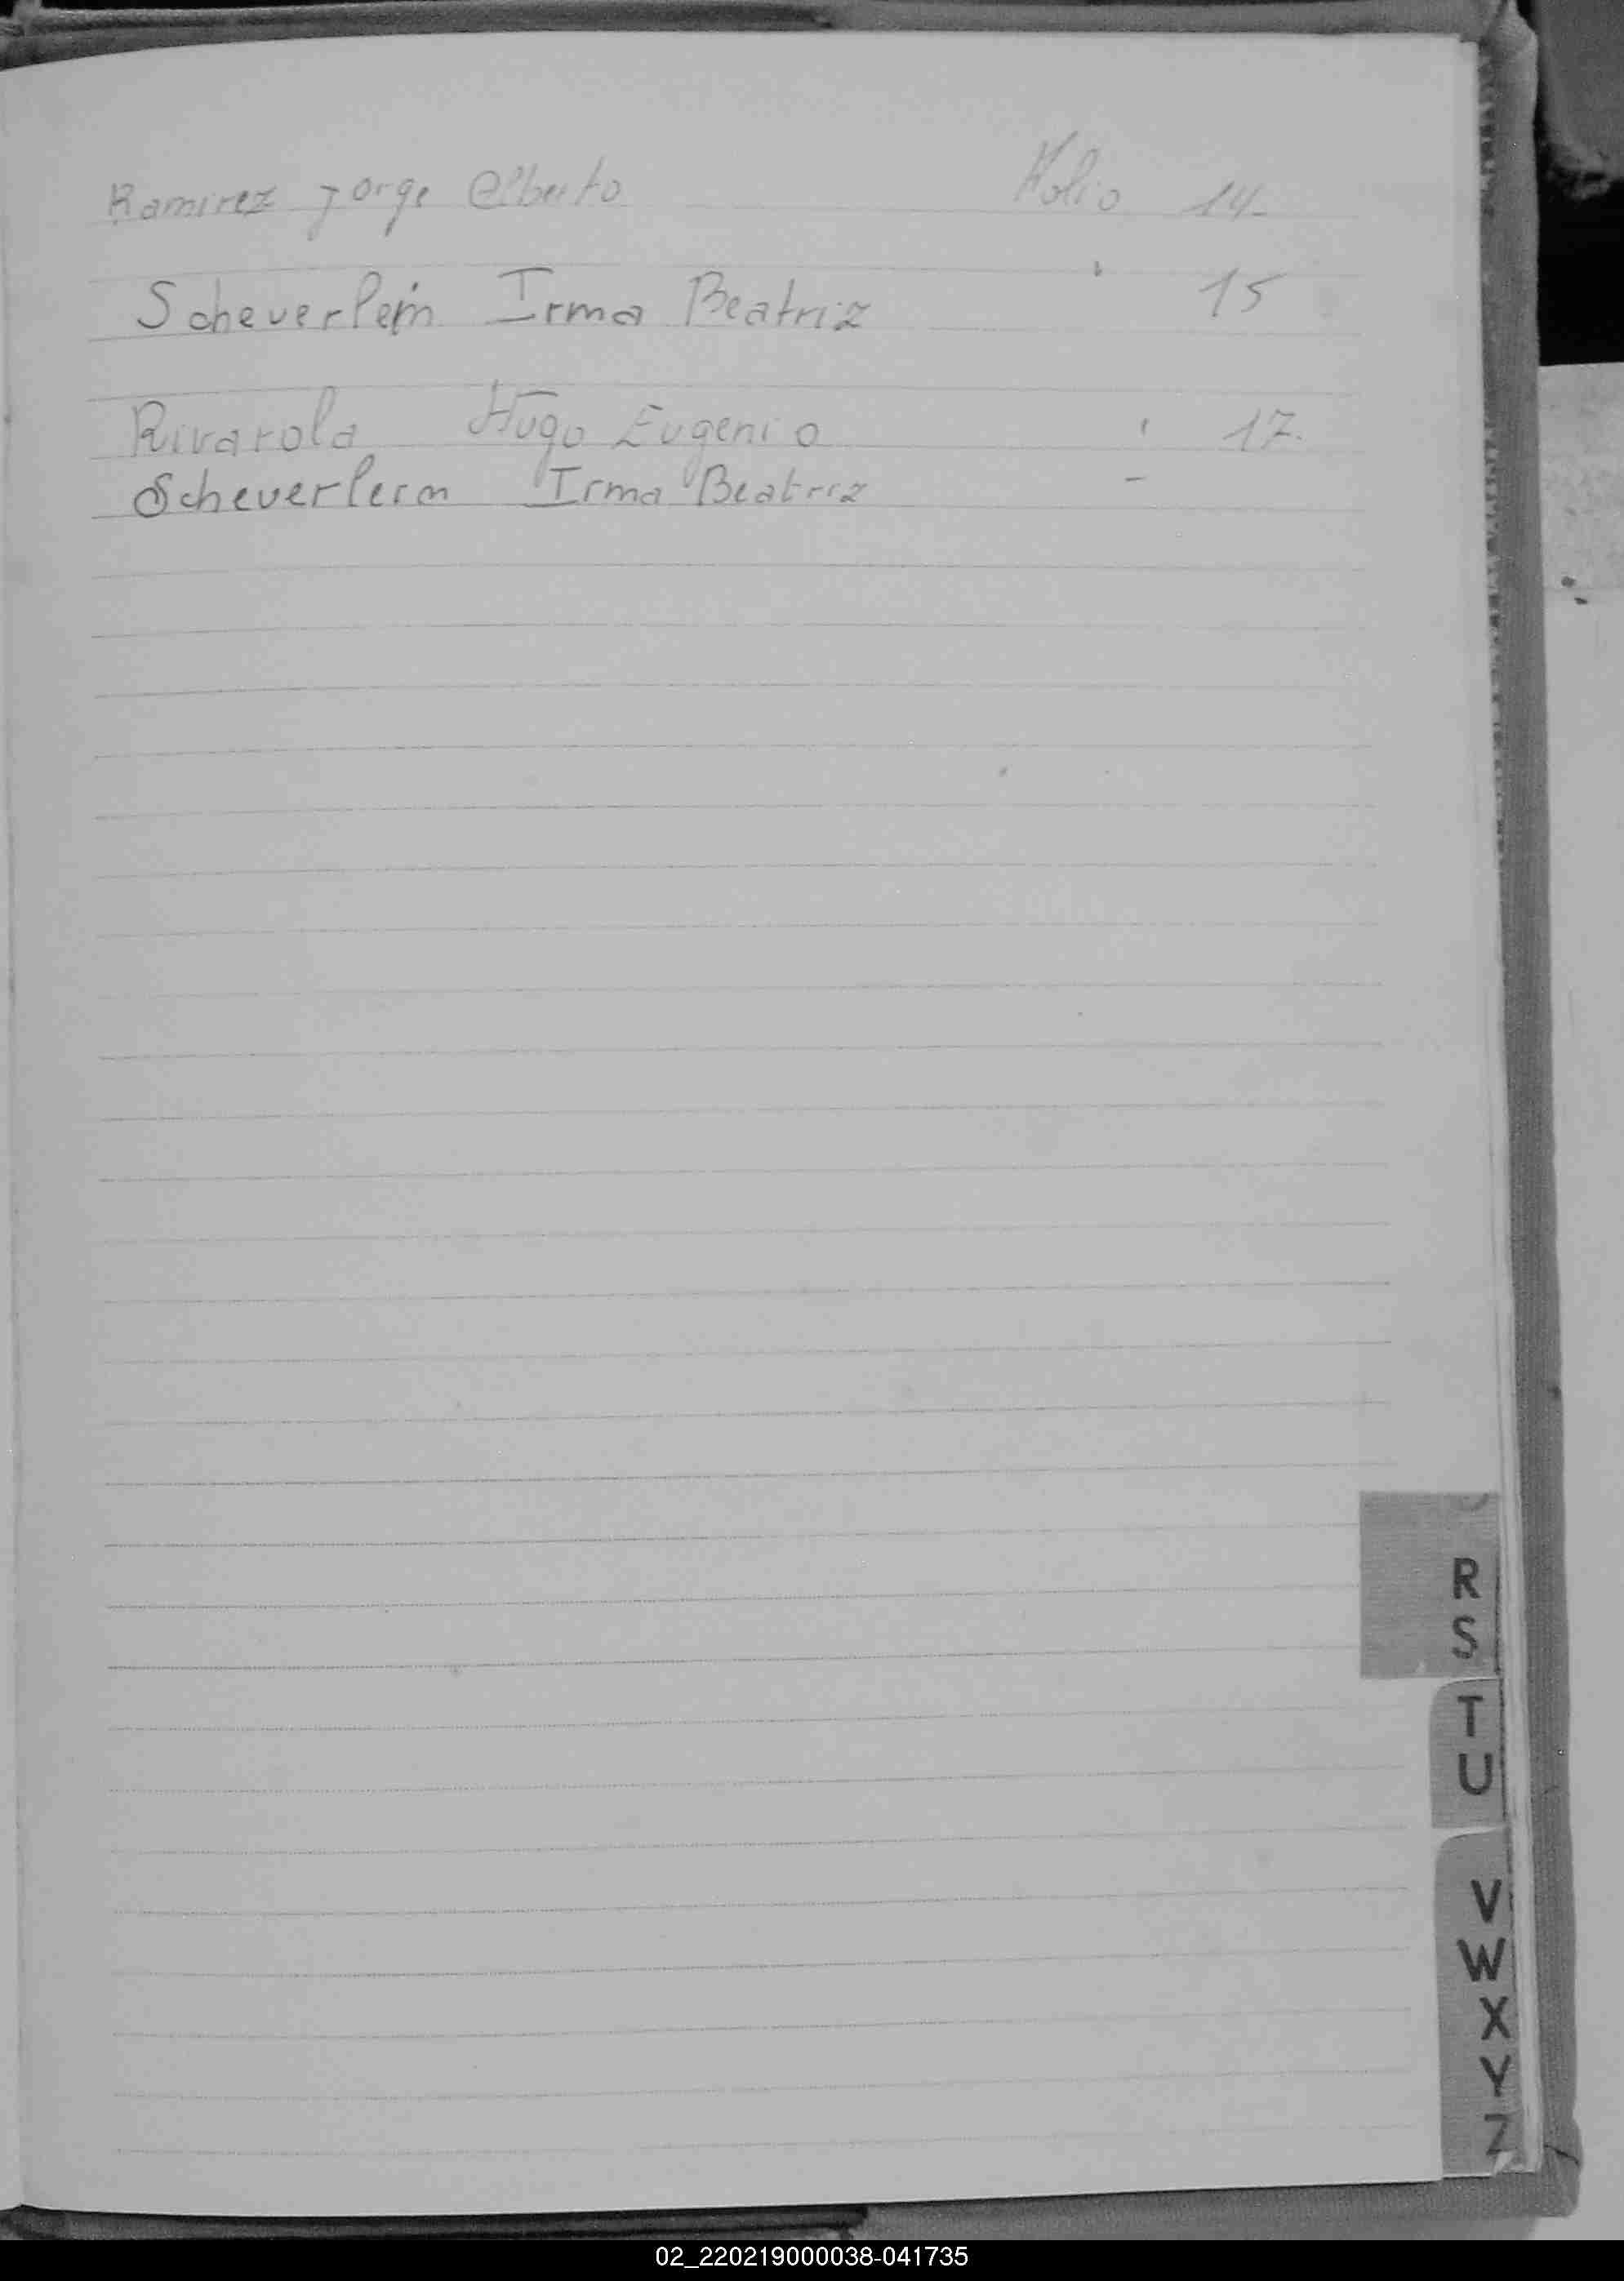 Ramirez Jorge Alberto Folio 14-
Scheverlein Irma Beatriz " 15
Rivarola Hugo Eugenio " 17.
Scheverlein Irma Beatriz -
R
S
T
U
V
W
X
Y
Z
02_220219000038-041735